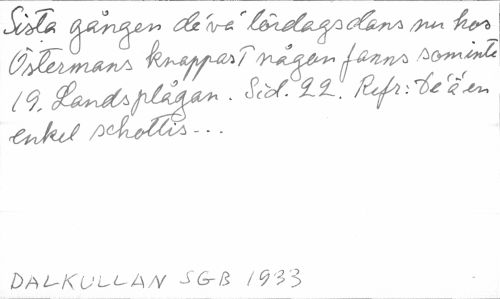 Sista gången de'va' lördagsdans nu hos
Östermans knappast någon fanns som inte
19. Landsplågan. Sid. 22. Refr: De'ä'en
enkel schottis...
DALKULLAN SGB 1933